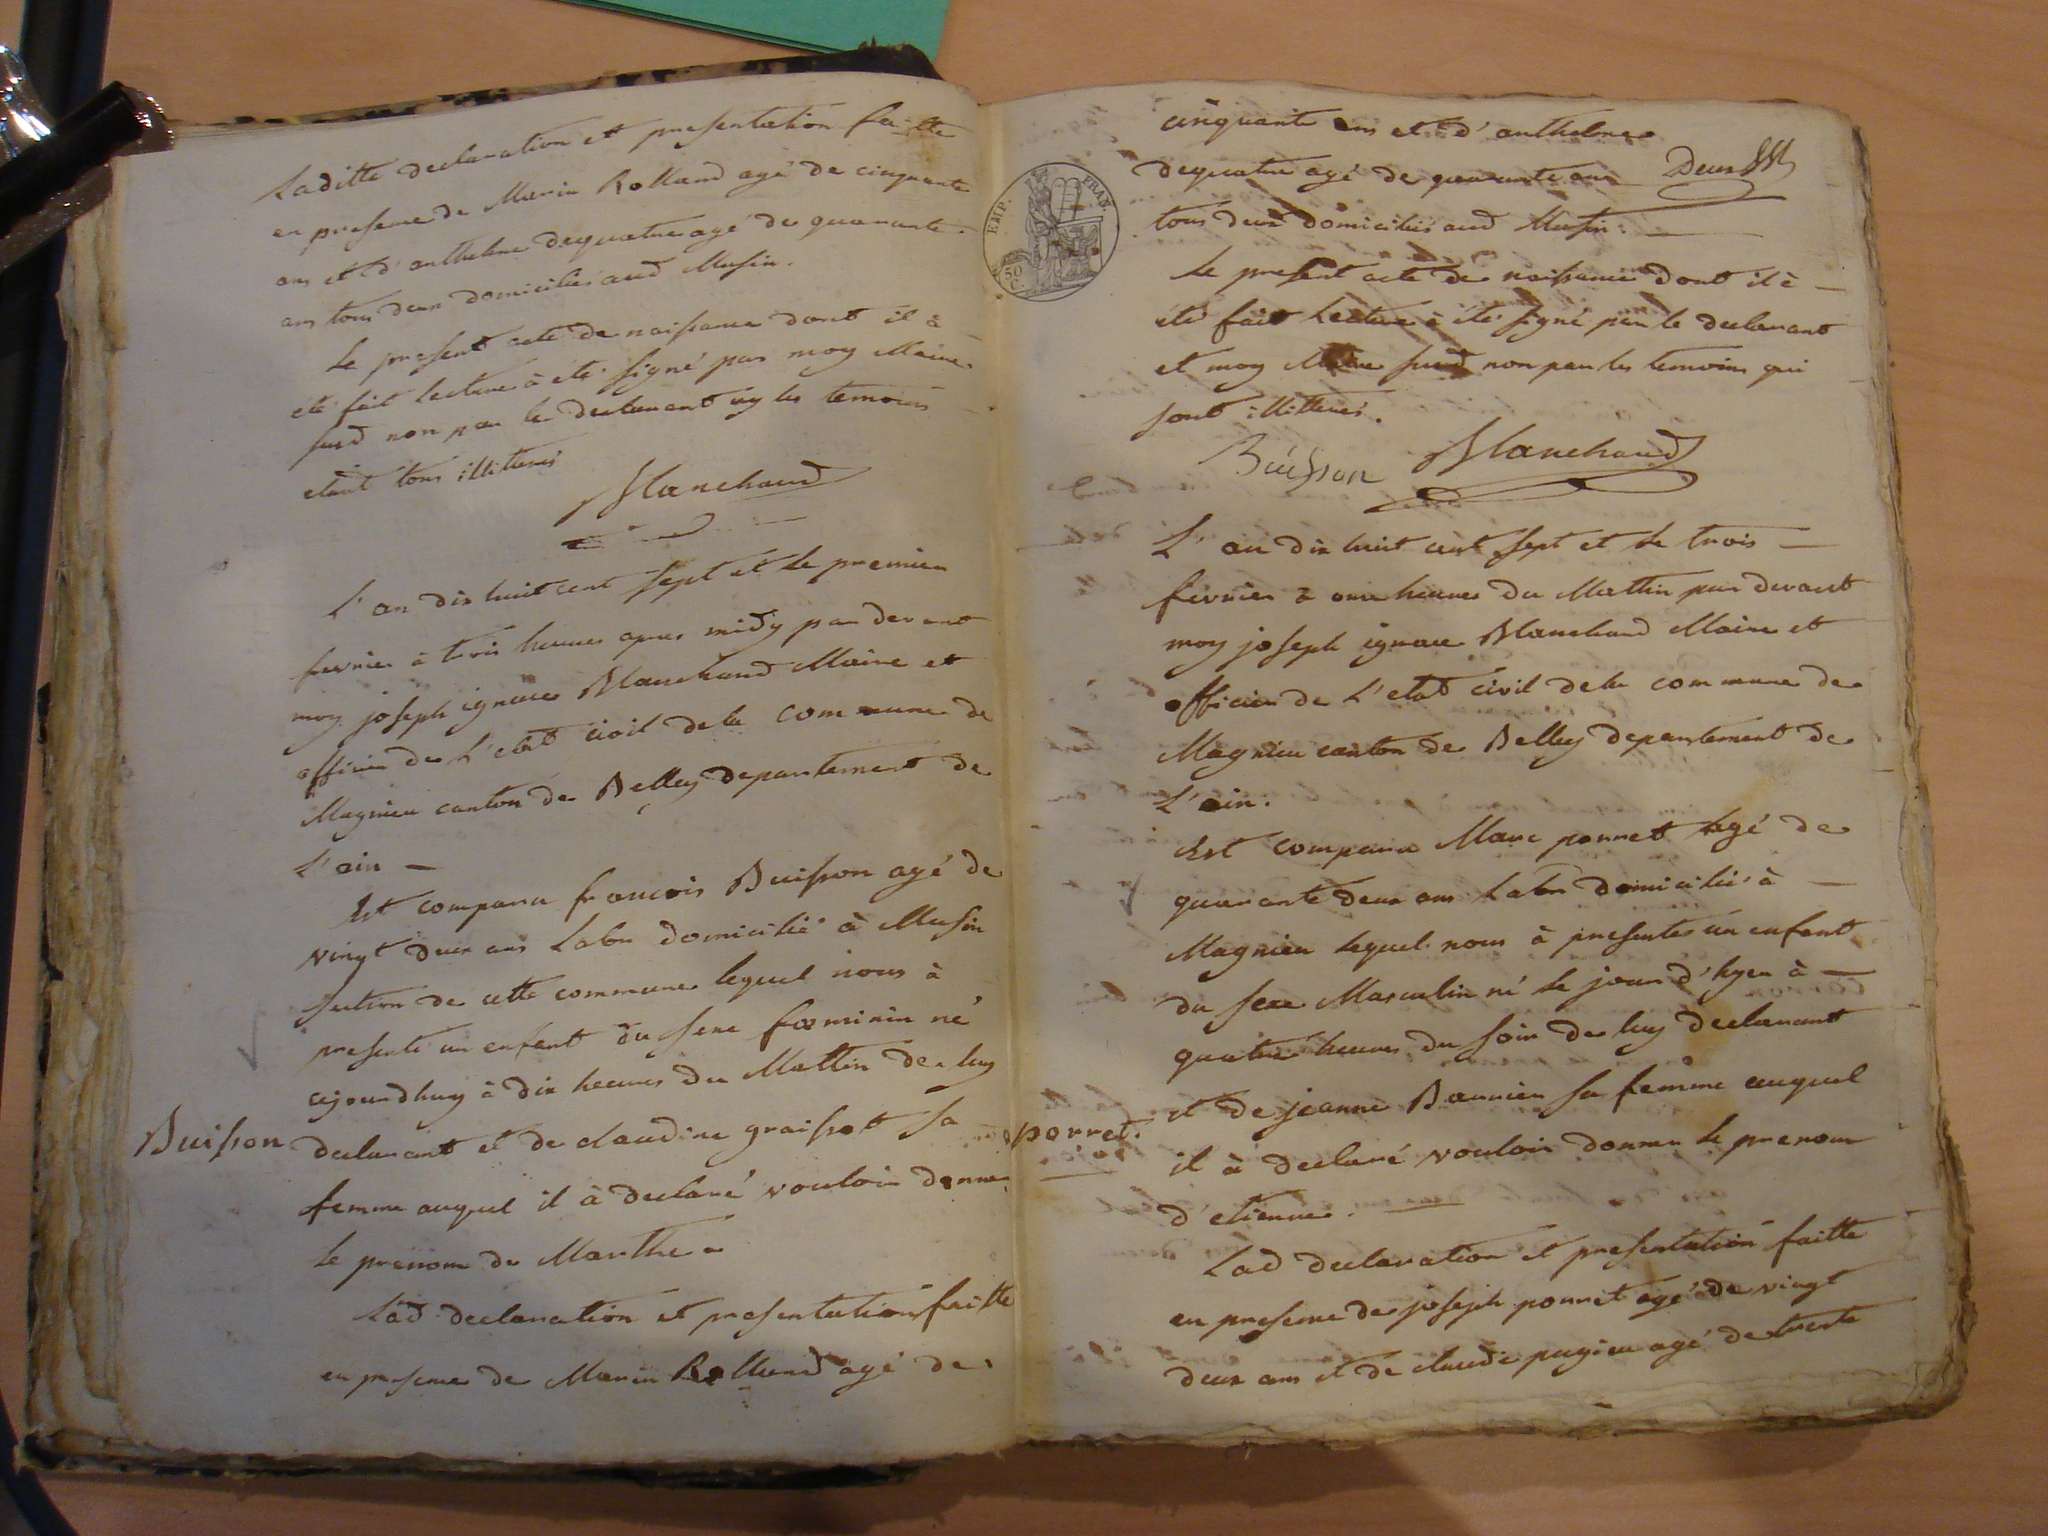 Laditte declaration et presentation faitte
en presence de Marin Rolland agé de cinquante
ans et d'anthelme dequatre agé de quarante
ans tous deux domiciliés aud Musin.
Le present acte de naissance dont il à
été fait lecture à été signé par moy Maire
susd non par le declarant ny les temoins
etant tous illitterés
Blanchard
L'an dix huit cent sept et le premier
fevrier à trois heures apres midy par devant
moy joseph ignace Blanchard Maire et
officier de L'etat civil dela commune de
Magnieu canton de Belley departement de
L'ain —
Est comparu francois Buisson agé de
vingt deux ans Labr domicilié à Musin
section de cette commune lequel nous à
presenté un enfant du sexe fœminin né
ajourdhuy à dix heures du Mattin de luy
Buisson
declarant et de claudine graissot sa
femme auquel il à declaré vouloir donner
le prenom de Marthe
Lad declaration et presentation faitte
en presence de Marin Rolland agé de
cinquante ans et d'anthelme
dequatre agé de quarante ans Deux
tous deux domiciliés aud Musin.
EMP. FRAN.
50 C.
Le present acte de naissance dont il à
été fait Lecture à été signé par le declarant
et moy Maire susd non par les temoins qui
sont illitterés.
Buisson Blanchard
L'an dix huit cent sept et le trois
fevrier à onze heures du Mattin par devant
moy joseph ignace Blanchard Maire et
officier de L'etat civil dela commune de
Magnieu canton de Belley departement de
L'ain.
Est comparu Marc porret agé de
quarante deux ans Labr domicilié à
Magnieu lequel nous à presenté un enfant
du sexe Masculin né le jour d'hyer à
quatre heures du soir de luy declarant
porret.
et de jeanne Bannier sa femme auquel
il à declaré vouloir donner le prenom
d'etienne.
Lad declaration et presentation faitte
en presence de joseph porret agé de vingt
deux ans et de claude pugieu agé de trente